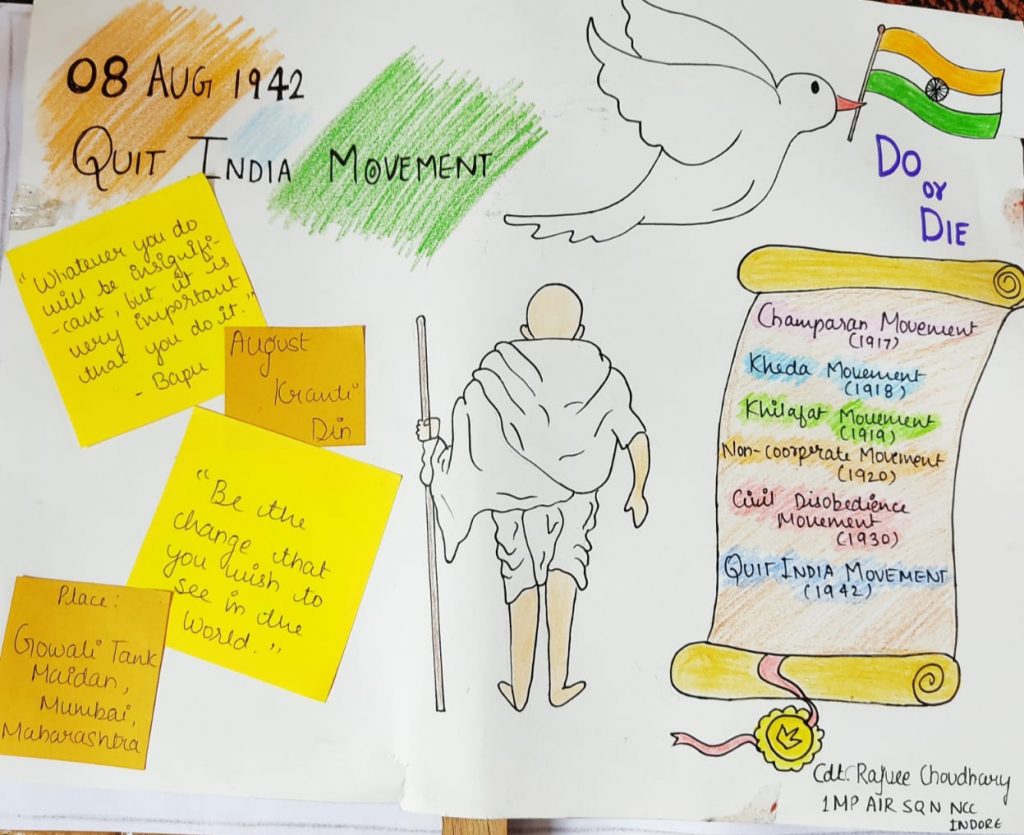 08 AUG 1942
QUIT INDIA MOVEMENT
"Whatever you do
will be insignifi-
-cant, but it is
very important
that you do it."
- Bapu
August
Kranti
Din
"Be the
change that
you wish to
see in the
World."
Place:
Gowali Tank
Maidan,
Mumbai,
Maharashtra
DO
or
DIE
Champaran Movement
(1917)
Kheda Movement
(1918)
Khilafat Movement
(1919)
Non-cooprate Movement
(1920)
Civil Disobedience
Movement
(1930)
QUIT INDIA MOVEMENT
(1942)
Cdt. Rajvee Choudhary
1MP AIR SQN NCC
INDORE